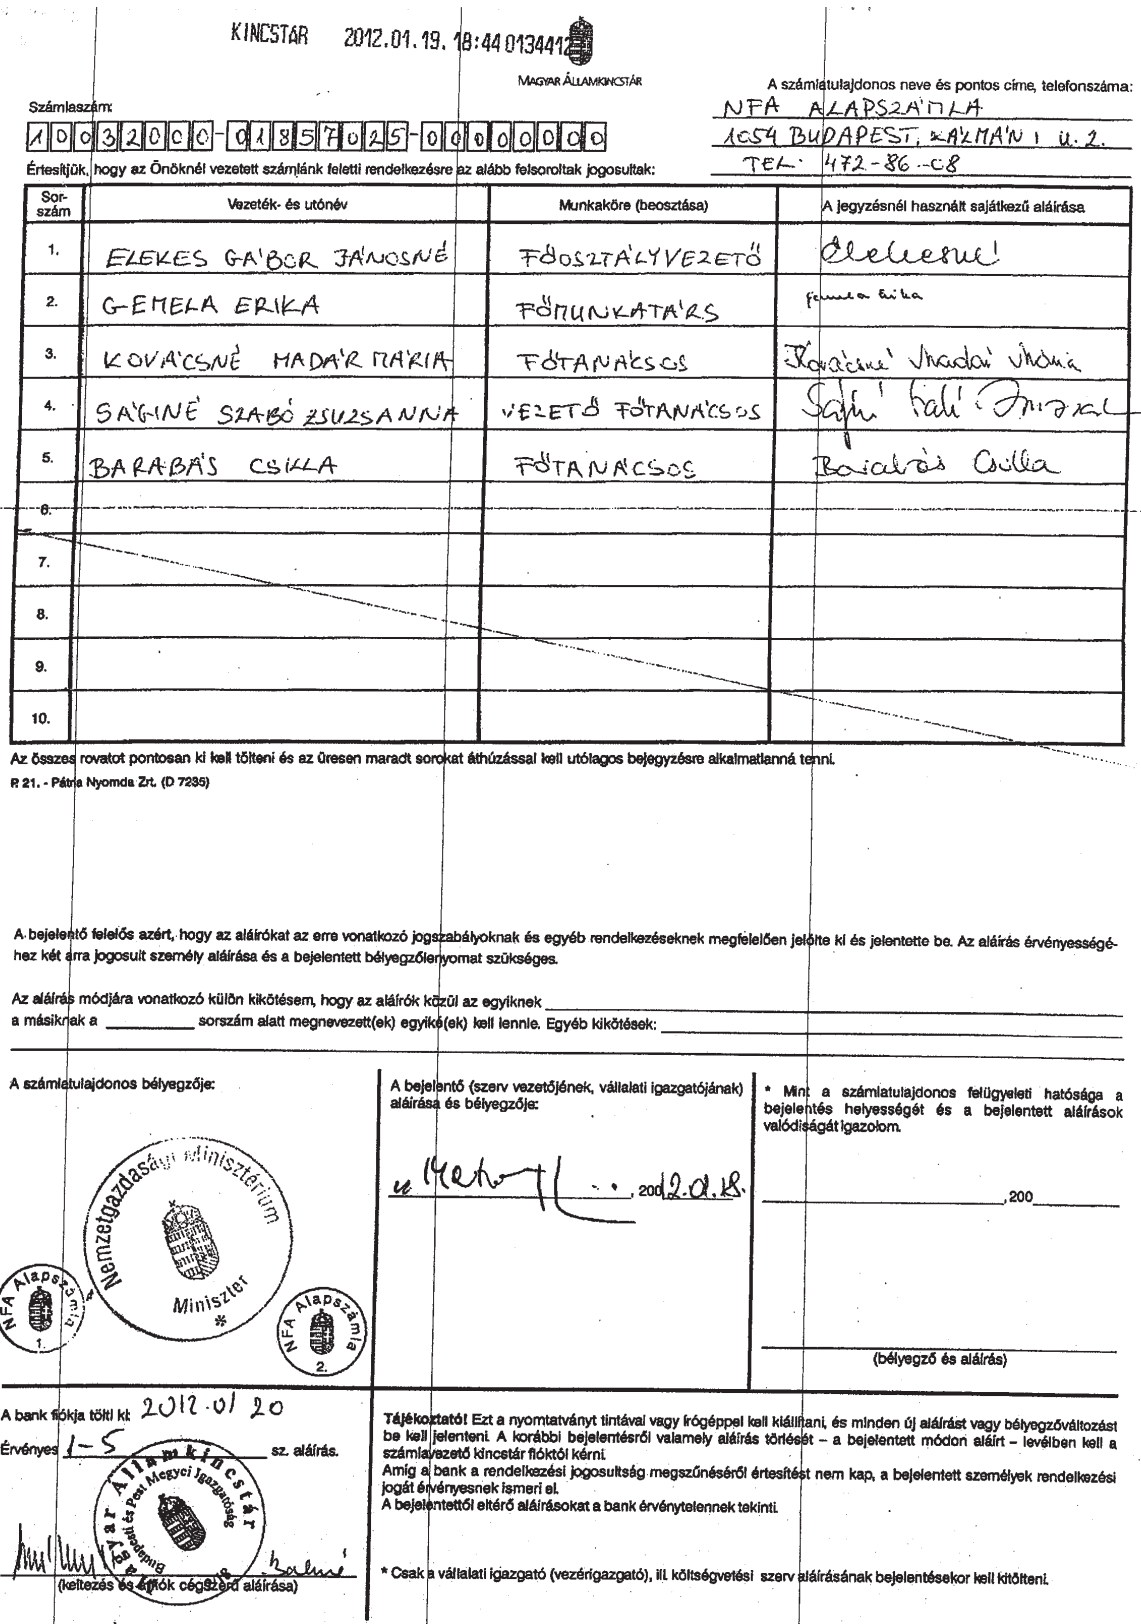 KINCSTÁR 2012.01.19. 18:44 0134412
MAGYAR ÁLLAMKINCSTÁR
A számlatulajdonos neve és pontos címe, telefonszáma:
NFA ALAPSZÁMLA
1054 BUDAPEST, KÁLMÁN I U. 2.
TEL: 472-86-08
Számlaszám:
10032000-01857025-00000000
Értesítjük, hogy az Önöknél vezetett számlánk feletti rendelkezésre az alább felsoroltak jogosultak:
Sor-szám Vezeték- és utónév Munkaköre (beosztása) A jegyzésnél használt sajátkezű aláírása
1. ELEKES GÁBOR JÁNOSNÉ FŐOSZTÁLYVEZETŐ Elekesné
2. GEMELA ERIKA FŐMUNKATÁRS Gemela Erika
3. KOVÁCSNÉ MADÁR MÁRIA FŐTANÁCSOS Kovácsné Madár Mária
4. SÁGINÉ SZABÓ ZSUZSANNA VEZETŐ FŐTANÁCSOS
5. BARABÁS CSILLA FŐTANÁCSOS Barabás Csilla
6.
7.
8.
9.
10.
Az összes rovatot pontosan ki kell tölteni és az üresen maradt sorokat áthúzással kell utólagos bejegyzésre alkalmatlanná tenni.
P. 21. - Pátria Nyomda Zrt. (D 7235)
A bejelentő felelős azért, hogy az aláírókat az erre vonatkozó jogszabályoknak és egyéb rendelkezéseknek megfelelően jelölte ki és jelentette be. Az aláírás érvényességé-
hez két arra jogosult személy aláírása és a bejelentett bélyegzőlenyomat szükséges.
Az aláírás módjára vonatkozó külön kikötésem, hogy az aláírók közül az egyiknek
a másiknak a sorszám alatt megnevezett(ek) egyiké(ek) kell lennie. Egyéb kikötések:
A számlatulajdonos bélyegzője:
Nemzetgazdasági Minisztérium
Miniszter
*
NFA Alapszámla
1.
NFA Alapszámla
2.
A bejelentő (szerv vezetőjének, vállalati igazgatójának)
aláírása és bélyegzője:
, 2012.01.18.
* Mint a számlatulajdonos felügyeleti hatósága a
bejelentés helyességét és a bejelentett aláírások
valódiságát igazolom.
, 200
(bélyegző és aláírás)
A bank fiókja tölti ki: 2012.01 20
Érvényes 1-5 sz. aláírás.
Magyar Államkincstár
Budapesti és Pest Megyei Igazgatóság
(keltezés és a fiók cégszerű aláírása)
Tájékoztató! Ezt a nyomtatványt tintával vagy írógéppel kell kiállítani, és minden új aláírást vagy bélyegzőváltozást
be kell jelenteni. A korábbi bejelentésről valamely aláírás törlését – a bejelentett módon aláírt – levélben kell a
számlavezető kincstár fióktól kérni.
Amíg a bank a rendelkezési jogosultság megszűnéséről értesítést nem kap, a bejelentett személyek rendelkezési
jogát érvényesnek ismeri el.
A bejelentettől eltérő aláírásokat a bank érvénytelennek tekinti.
* Csak a vállalati igazgató (vezérigazgató), ill. költségvetési szerv aláírásának bejelentésekor kell kitölteni.